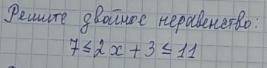 Решите двойное неравенство:
7≤2x+3≤11